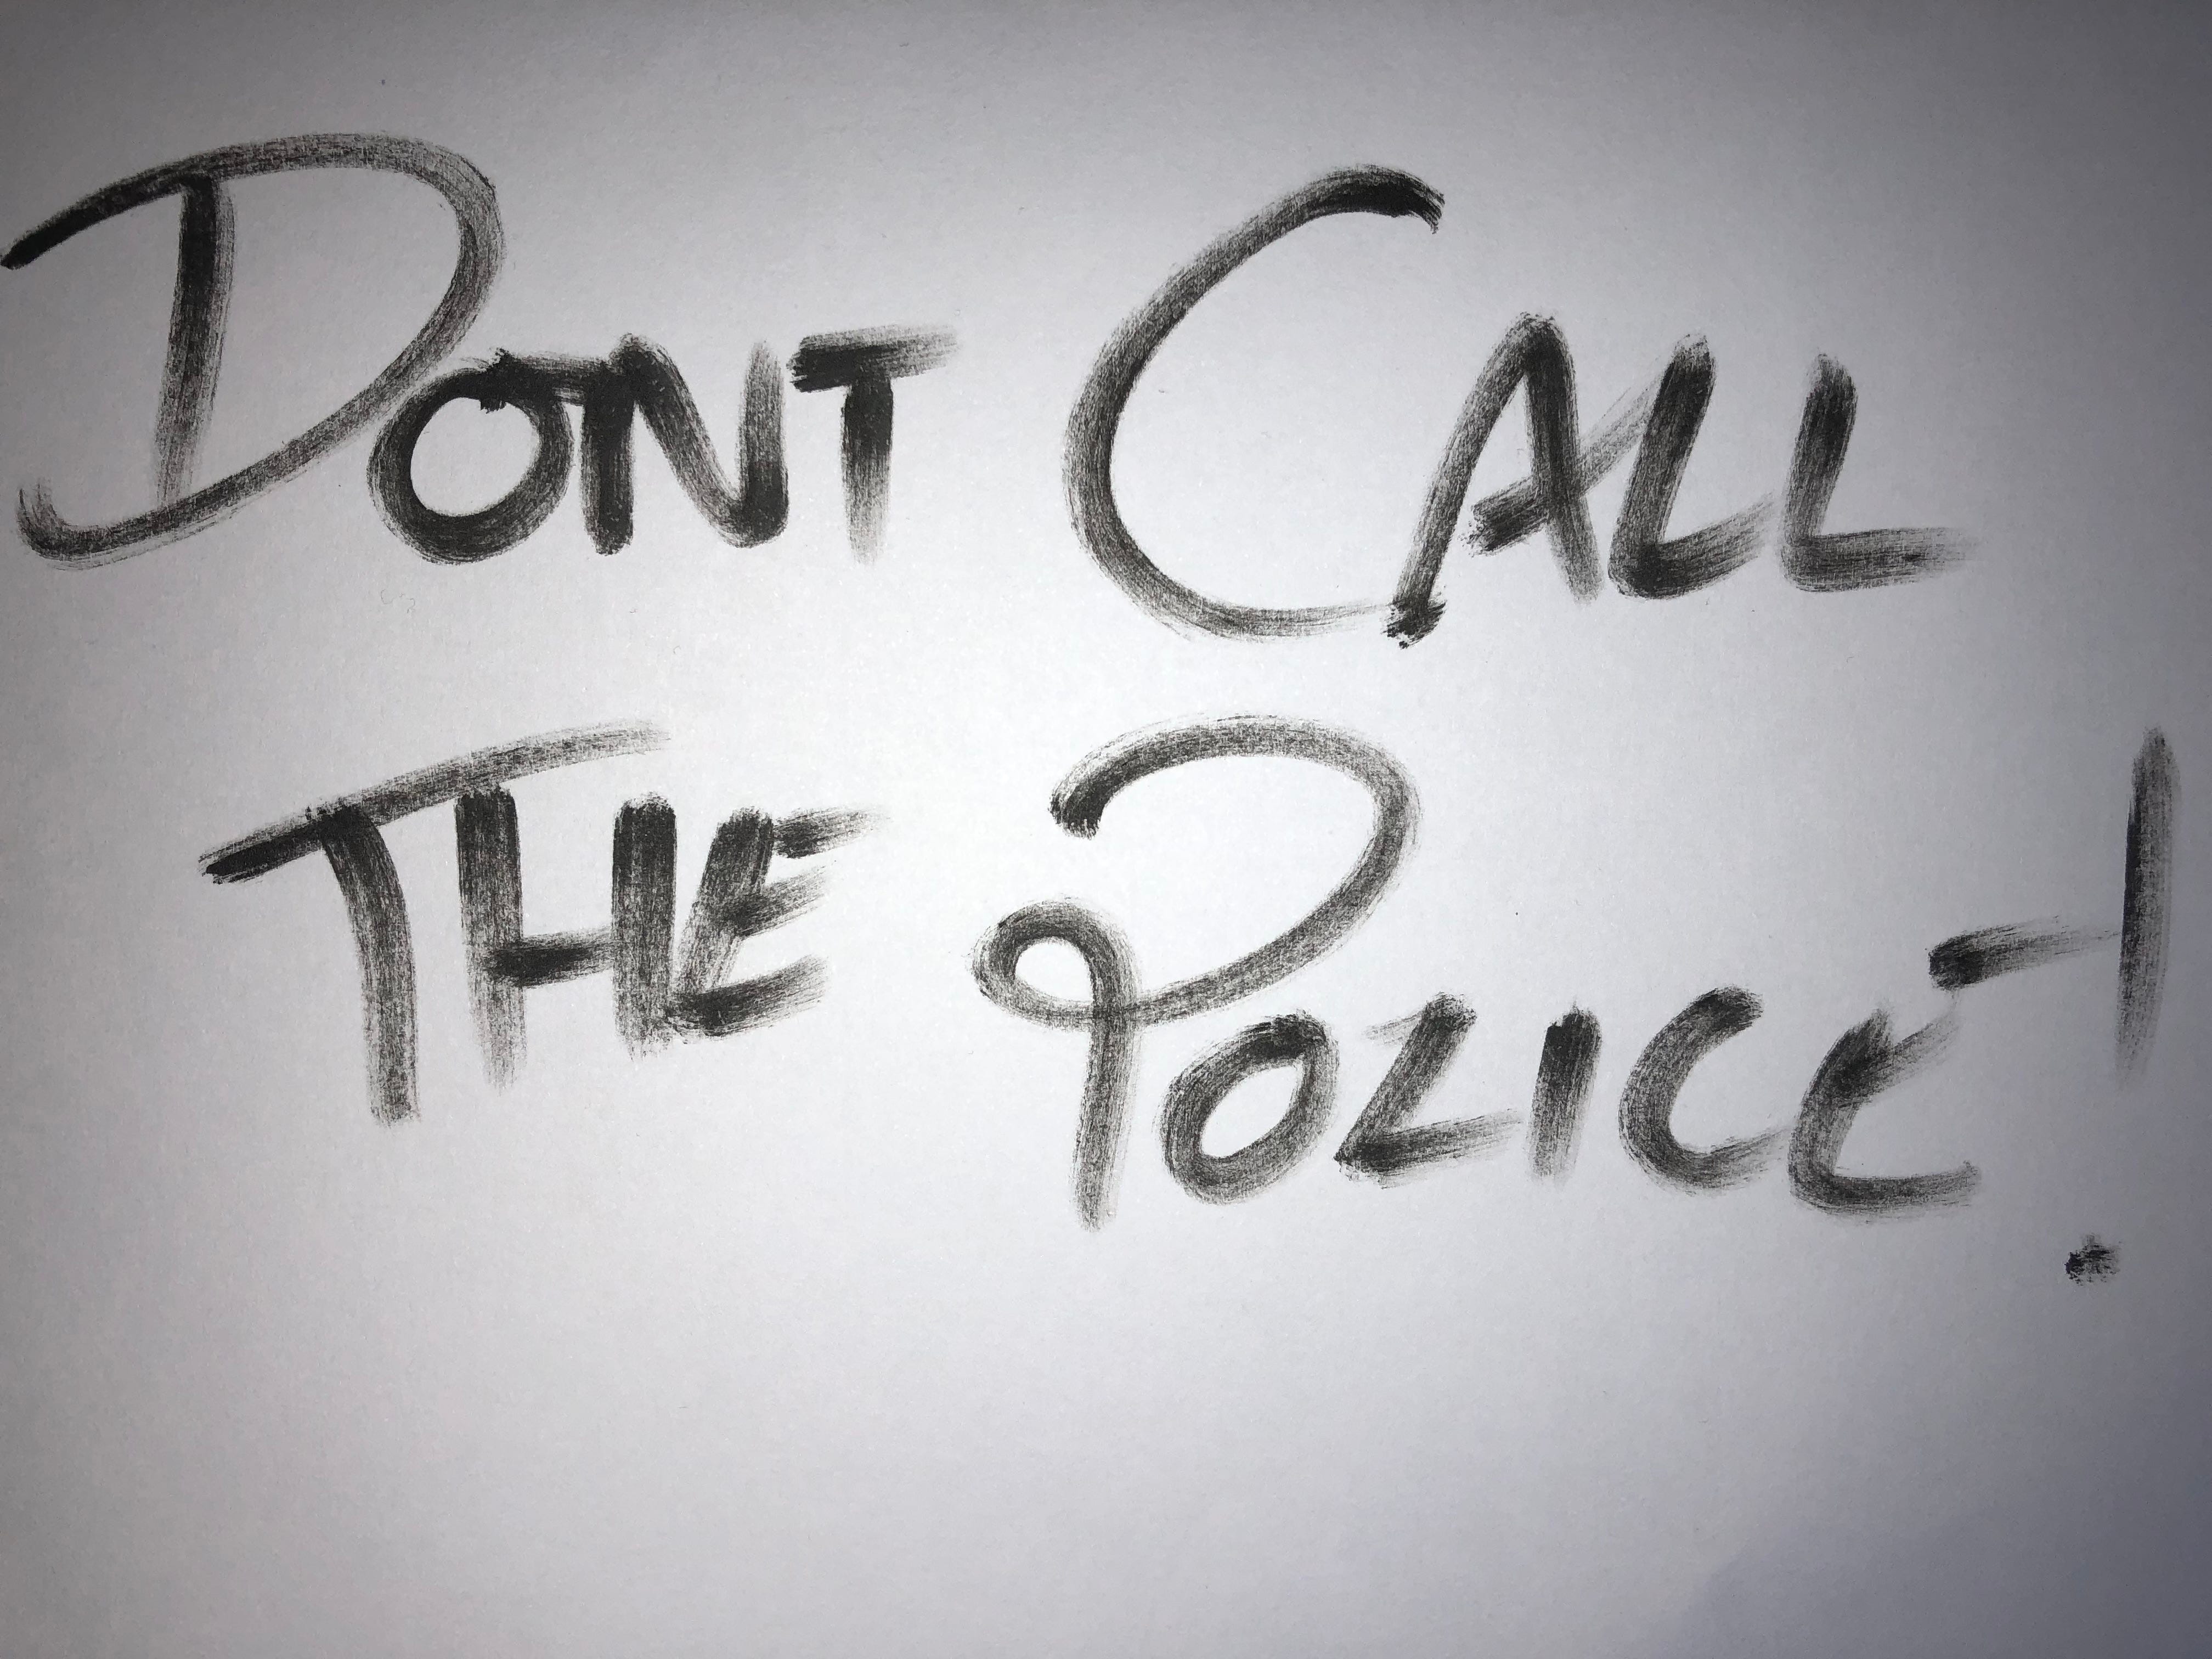 DONT CALL
THE POLICE!